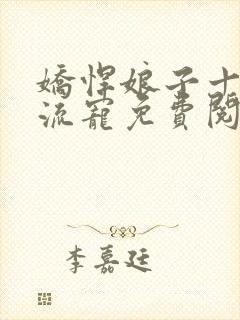 嬌悍娘子十
流寵免費閱
李嘉廷